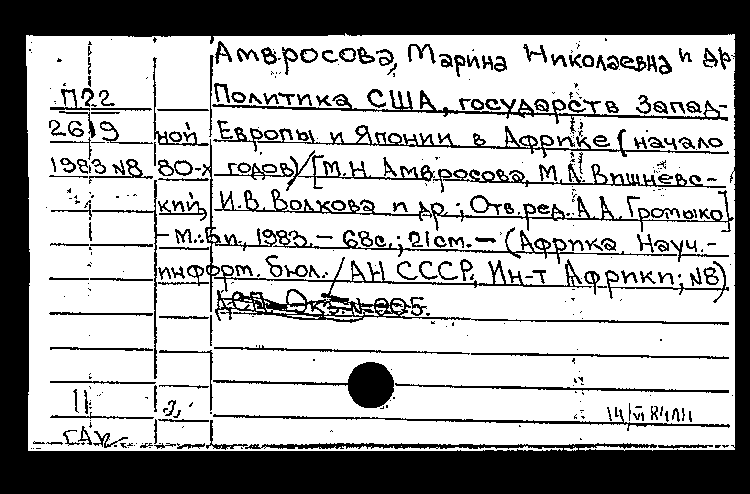 Амвросова, Марина Николаевна и др
П22 Политика США, государств Запад-
2619 ной Европы и Японии в Африке (начало
1983 N8 80-х годов)/[М.Н. Амвросова, М.А. Вишневс-
кий, И.В. Волкова и др.; Отв. ред. А.А. Громыко].
- М.: Би, 1983. - 68с.; 21см. - (Африка. Науч.-
информ. бюл. / АН СССР, Ин-т Африки; N8)
ДСП. Экз. N 005.
11 2,
14/VI 84